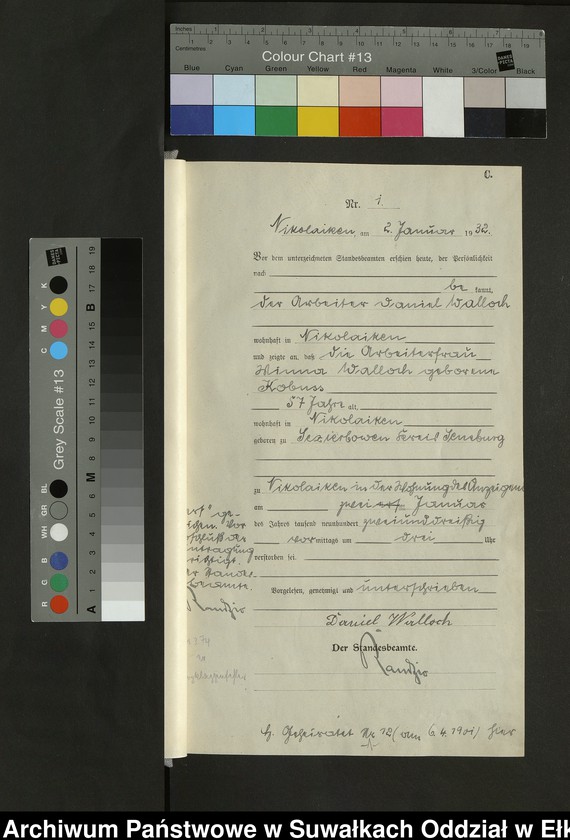 Inches
Centimetres
Colour Chart #13
Blue Cyan Green Yellow Red Magenta White 3/Color Black
Grey Scale #13
C.
Nr. 1.
Nikolaiken, am 2. Januar 1932.
Vor dem unterzeichneten Standesbeamten erschien heute, der Persönlichkeit
nach
be kannt,
der Arbeiter Daniel Walloch
wohnhaft in Nikolaiken
und zeigte an, daß die Arbeiterfrau
Walloch geborene
Kobuss
57 Jahre alt,
wohnhaft in Nikolaiken
geboren zu Kreis Sensburg
zu Nikolaiken in der Wohnung des Anzeigenden
am zwei ten Januar
des Jahres tausend neunhundert zweiunddreißig
vormittags um drei Uhr
verstorben sei.
Vorgelesen, genehmigt und unterschrieben
Daniel Walloch
Der Standesbeamte.
Geheiratet Nr 12 (am 6.4.1901) hier
Archiwum Państwowe w Suwałkach Oddział w Ełk